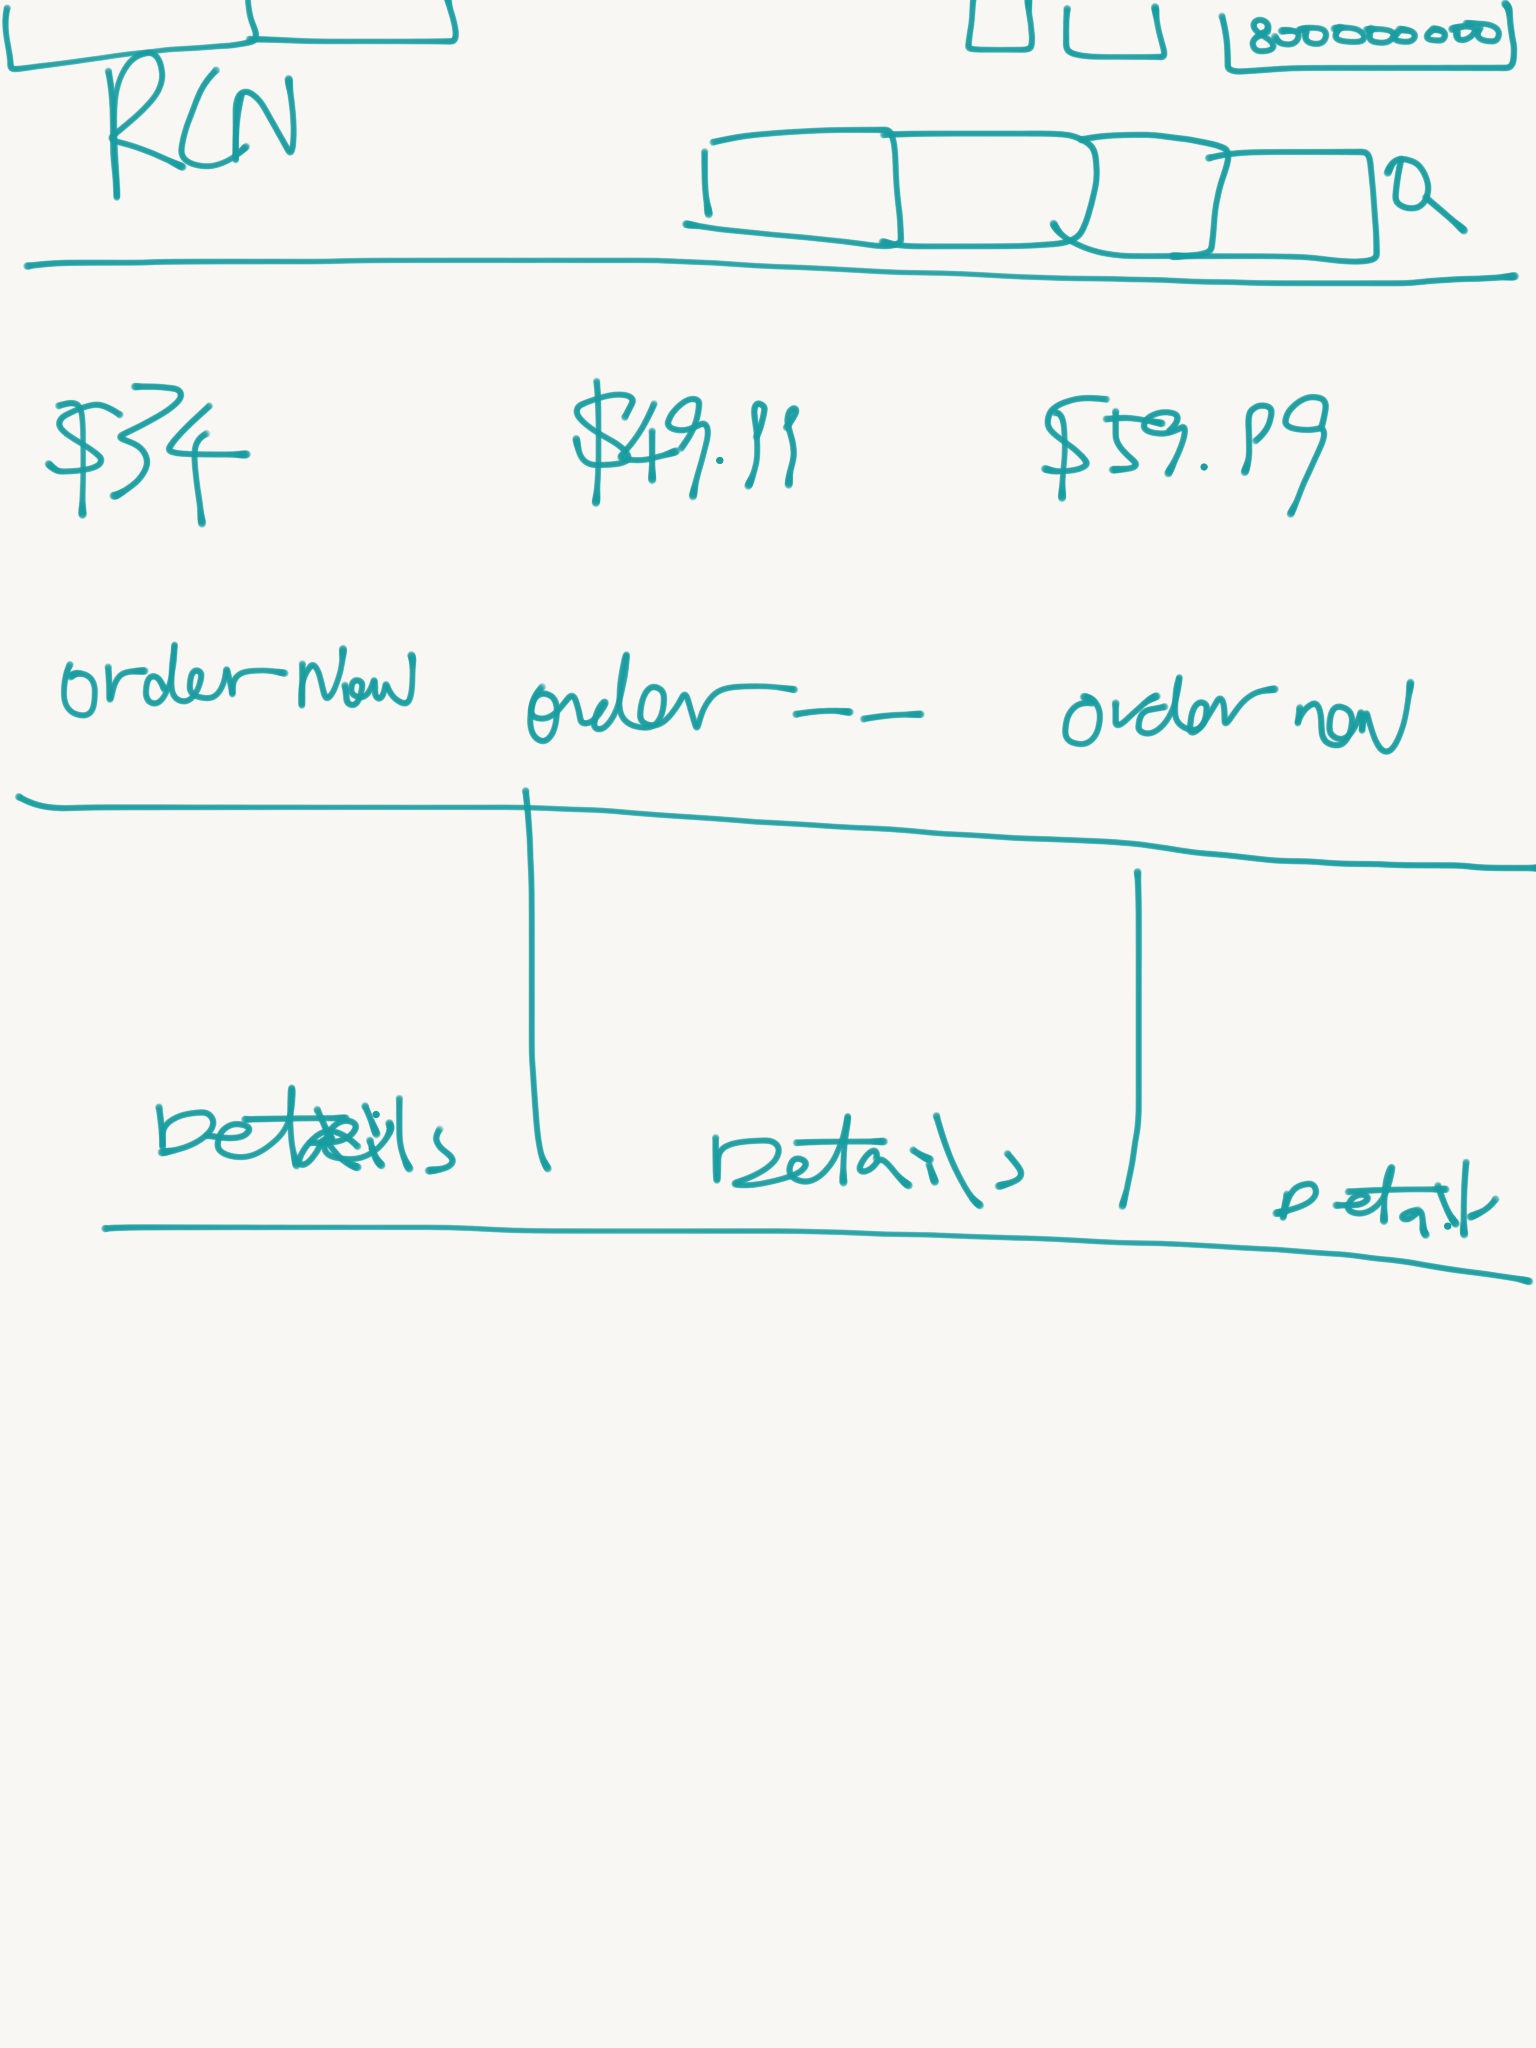 RCN
$34 $49.99 $59.99
order Now order--- order now
Details Details Details